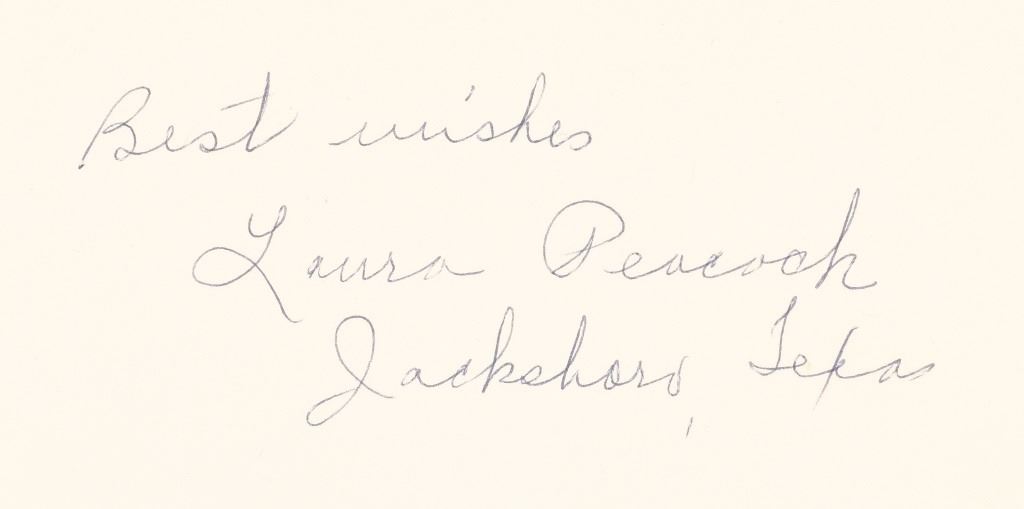 Best wishes
Laura Peacock
Jacksboro, Texas